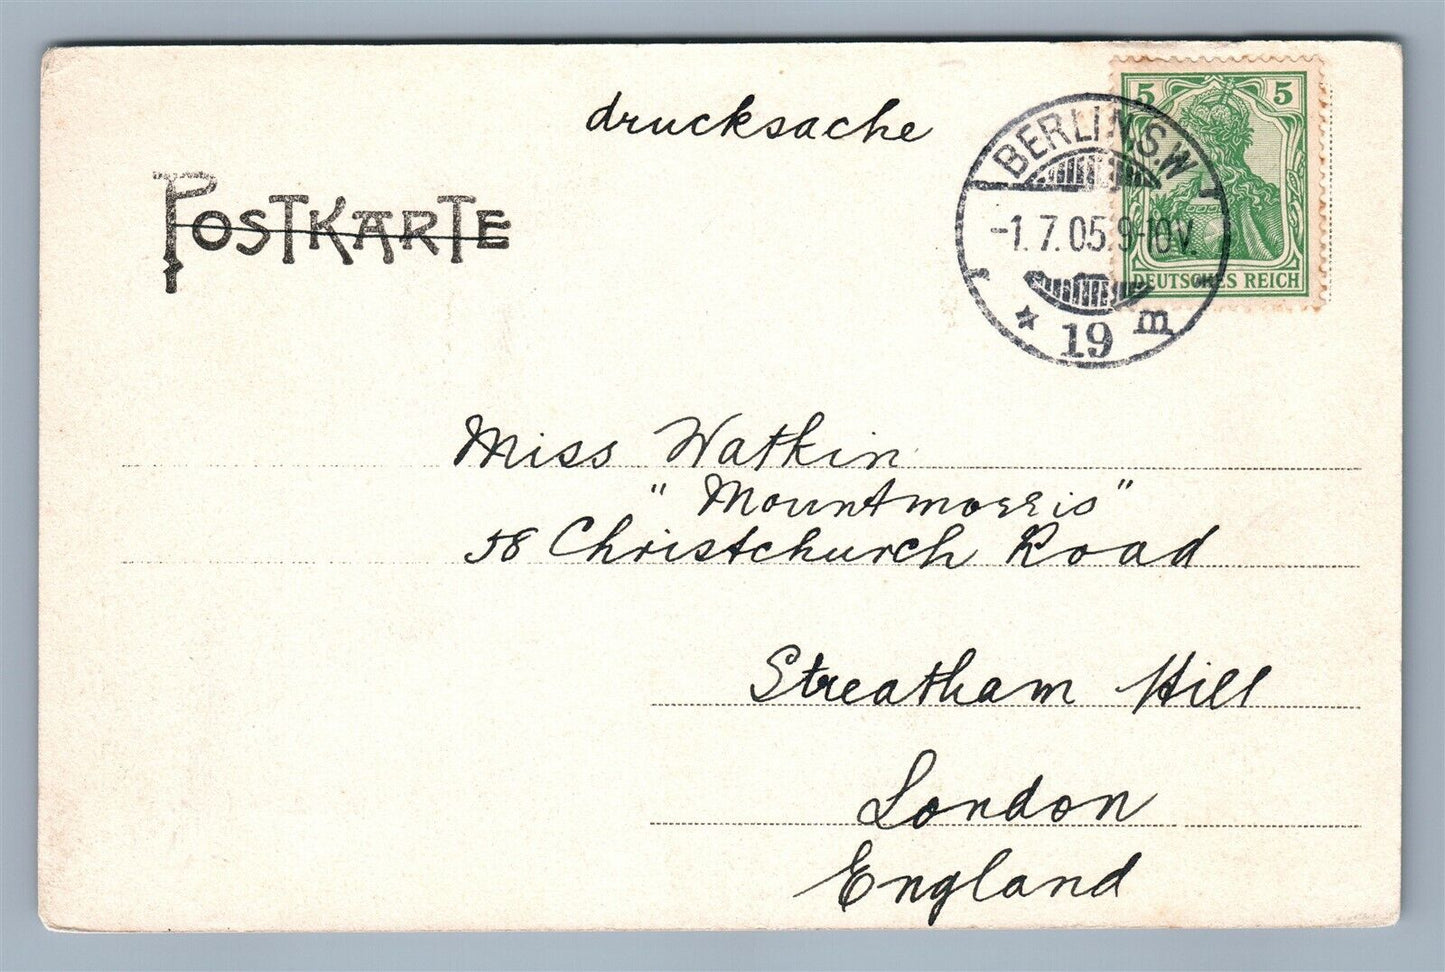 drucksache
POSTKARTE
5 5
DEUTSCHES REICH
BERLIN.S.W
-1.7.05.9-10V.
* 19 m
Miss Watkin
"Mountmorris"
58 Christchurch Road
Streatham Hill
London
England